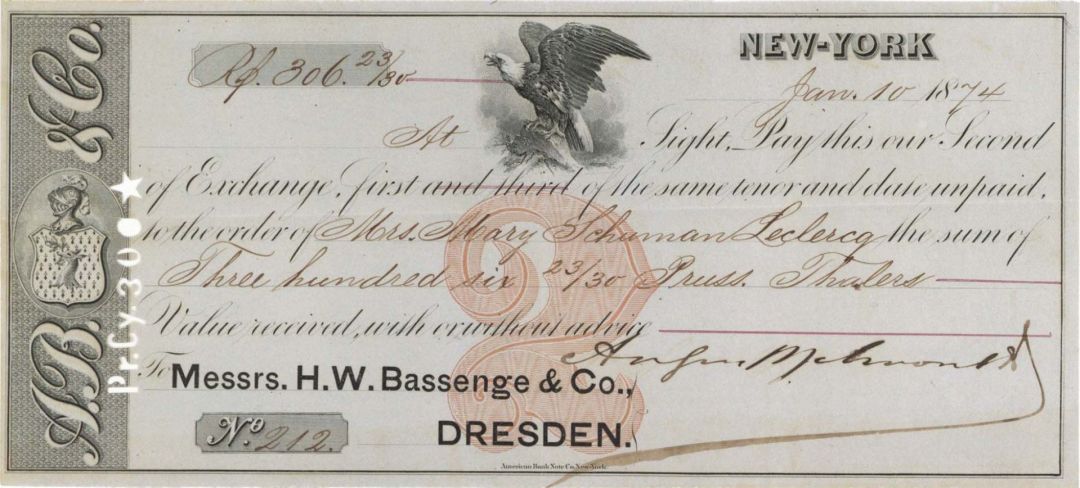 A.B. & Co.
Pr.Cy.300★
Rf. 306. 23/30
NEW-YORK
Jan. 10 1874
At Sight, Pay this our Second
of Exchange, first and third of the same tenor and date unpaid,
to the order of Mrs. Mary Schuman Leclercq the sum of
Three hundred six 23/30 Pruss. Thalers
Value received, with or without advice
To Messrs. H.W. Bassenge & Co.,
DRESDEN.
No. 212.
2
American Bank Note Co. New-York